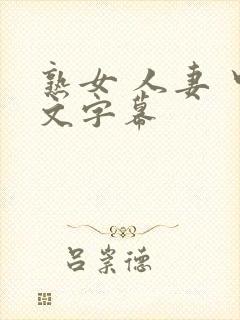 熟女 人妻 中
文字幕
吕崇德